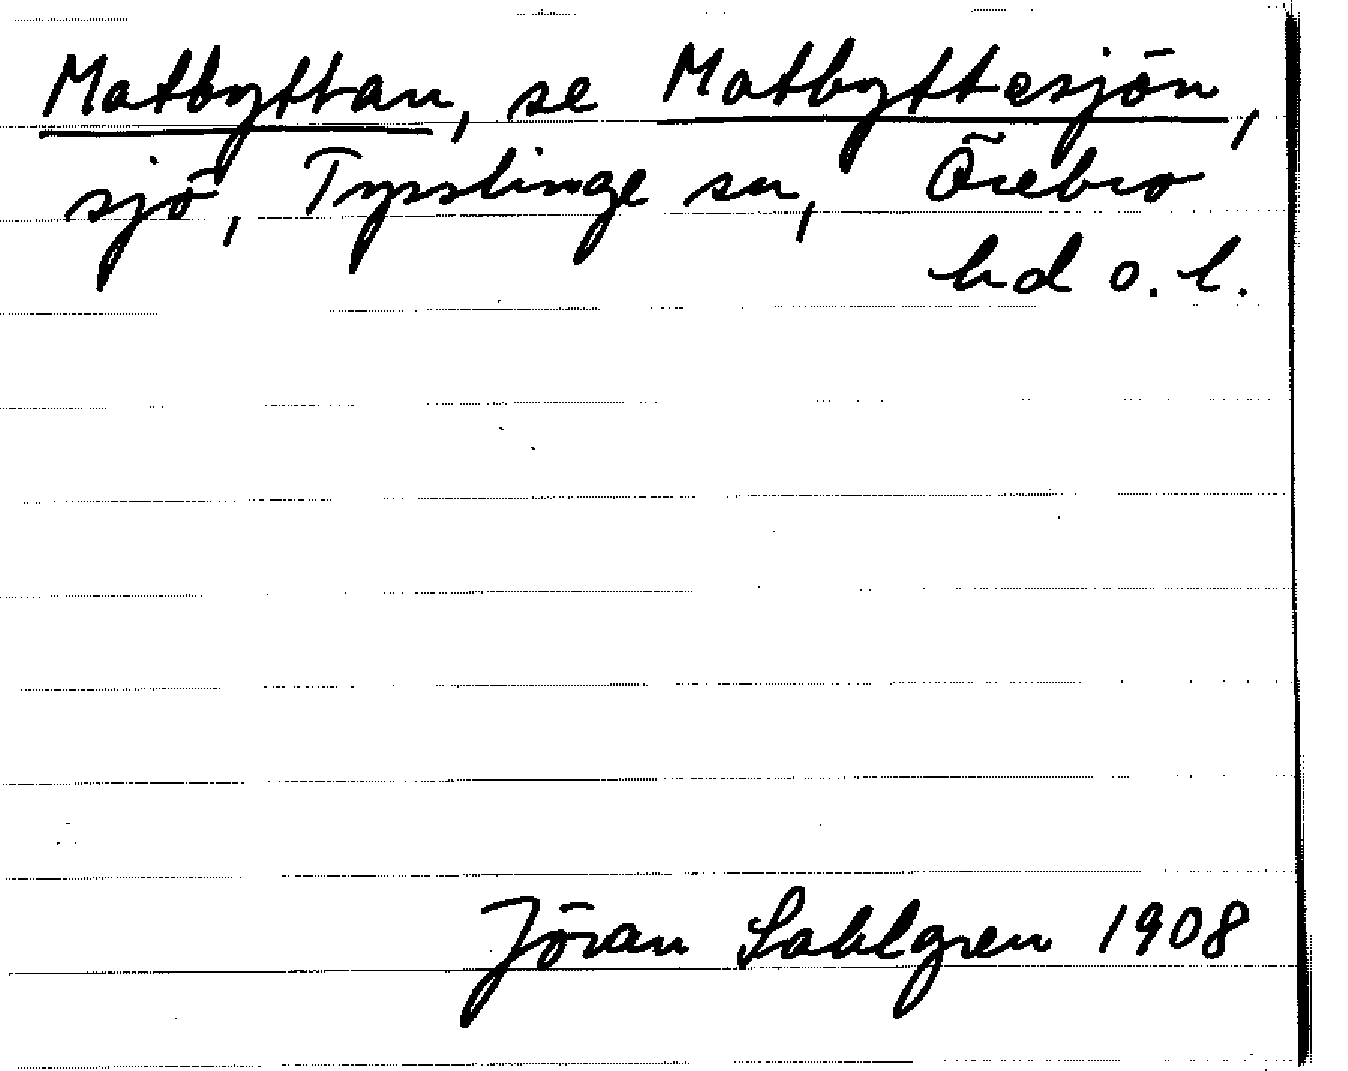 Matbyttan, se Matbyttesjön,
sjö, Tysslinge sn, Örebro
hd o. l.
Jöran Sahlgren 1908